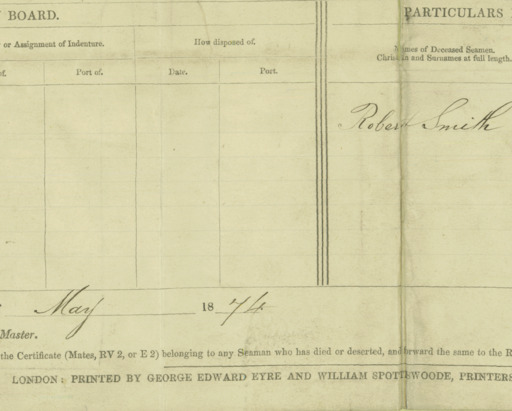 BOARD.
PARTICULARS
or Assignment of Indenture.
How disposed of.
Names of Deceased Seamen.
Christian and Surnames at full length.
of.
Port of.
Date.
Port.
Robert Smith
May 1874
Master.
the Certificate (Mates, RV 2, or E 2) belonging to any Seaman who has died or deserted, and forward the same to the R
LONDON: PRINTED BY GEORGE EDWARD EYRE AND WILLIAM SPOTTISWOODE, PRINTERS